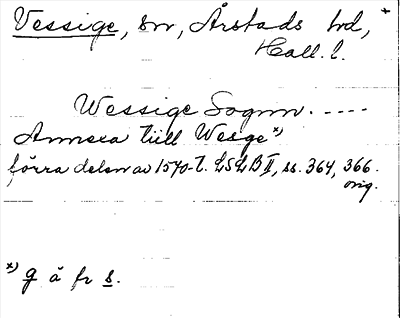 Vessige, sn, Årstads hd, *
Hall. l.
Wessige Sognn. ----
Annexa till Wesge x)
förra delen av 1570-t. LSLB II, ss. 364, 366.
orig.
x) g å fr s.